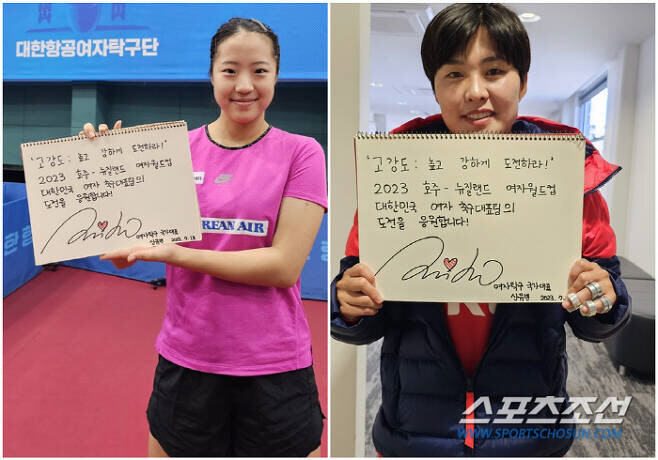 대한항공여자탁구단
'고강도 : 높고 강하게 도전하라!'
2023 호주 - 뉴질랜드 여자월드컵
대한민국 여자 축구대표팀의
도전을 응원합니다!
여자탁구 국가대표
신유빈 2023. 7. 18
KOREAN AIR
'고강도 : 높고 강하게 도전하라!'
2023 호주 - 뉴질랜드 여자월드컵
대한민국 여자 축구대표팀의
도전을 응원합니다!
여자탁구 국가대표
신유빈 2023. 7.
스포츠조선
WWW.SPORTSCHOSUN.COM